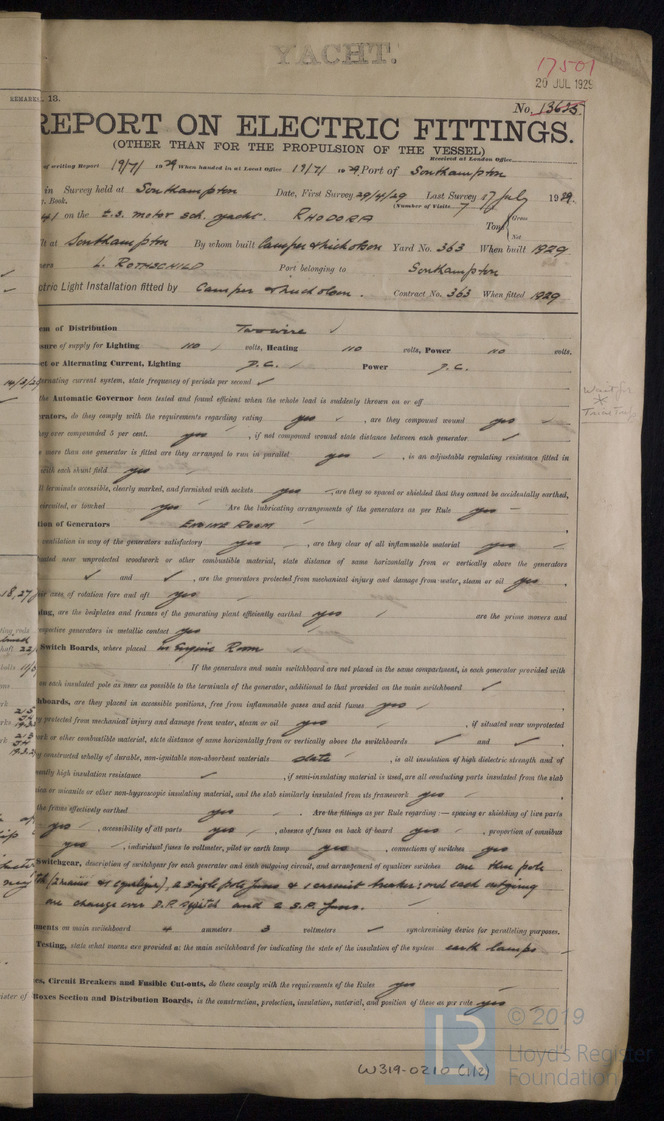 YACHT.
17501
20 JUL 1929
REMARKS. 13.
No. 13635.
REPORT ON ELECTRIC FITTINGS.
(OTHER THAN FOR THE PROPULSION OF THE VESSEL)
Received at London Office
of writing Report 19/7/ 1929 When handed in at Local Office 19/7/ 1929 Port of Southampton
in Survey held at Southampton Date, First Survey 29/4/29 Last Survey 17 July 1929.
. Book. (Number of Visits 7
41 on the t.s. motor sch. yacht. RHODORA Tons Gross
Net
lt at Southampton By whom built Camper & Nicholson Yard No. 363 When built 1929
ners L. ROTHSCHILD Port belonging to Southampton
ctric Light Installation fitted by Camper & Nicholson. Contract No. 363 When fitted 1929
em of Distribution Two wire ✓
sure of supply for Lighting 110 volts, Heating 110 volts, Power 110 volts.
ct or Alternating Current, Lighting D.C. Power D.C.
ternating current system, state frequency of periods per second ✓
the Automatic Governor been tested and found efficient when the whole load is suddenly thrown on or off
erators, do they comply with the requirements regarding rating yes, are they compound wound yes
they over compounded 5 per cent. yes, if not compound wound state distance between each generator ✓
e more than one generator is fitted are they arranged to run in parallel yes, is an adjustable regulating resistance fitted in
with each shunt field yes
ll terminals accessible, clearly marked, and furnished with sockets yes are they so spaced or shielded that they cannot be accidentally earthed,
circuited, or touched yes Are the lubricating arrangements of the generators as per Rule yes
tion of Generators ENGINE ROOM
ventilation in way of the generators satisfactory yes, are they clear of all inflammable material yes
tuated near unprotected woodwork or other combustible material, state distance of same horizontally from or vertically above the generators
✓ and ✓, are the generators protected from mechanical injury and damage from water, steam or oil yes,
eir axes of rotation fore and aft yes
ing, are the bedplates and frames of the generating plant efficiently earthed yes are the prime movers and
respective generators in metallic contact yes
Switch Boards, where placed in Engine Room
If the generators and main switchboard are not placed in the same compartment, is each generator provided with
on each insulated pole as near as possible to the terminals of the generator, additional to that provided on the main switchboard ✓
hboards, are they placed in accessible positions, free from inflammable gases and acid fumes yes
y protected from mechanical injury and damage from water, steam or oil yes, if situated near unprotected
ork or other combustible material, state distance of same horizontally from or vertically above the switchboards ✓ and ✓,
y constructed wholly of durable, non-ignitable non-absorbent materials slate, is all insulation of high dielectric strength and of
nently high insulation resistance ✓, if semi-insulating material is used, are all conducting parts insulated from the slab
ica or micanite or other non-hygroscopic insulating material, and the slab similarly insulated from its framework yes
the frame effectively earthed yes. Are the fittings as per Rule regarding:— spacing or shielding of live parts
yes, accessibility of all parts yes, absence of fuses on back of board yes, proportion of omnibus
yes, individual fuses to voltmeter, pilot or earth lamp yes, connections of switches yes
Switchgear, description of switchgear for each generator and each outgoing circuit, and arrangement of equalizer switches one three pole
(2 mains & 1 equaliser), 2 single pole fuses & 1 circuit breaker: and each outgoing
one change over D.P. switch and 2 S.P. fuses.
ments on main switchboard 4 ammeters 3 voltmeters ✓ synchronising device for paralleling purposes.
Testing, state what means are provided at the main switchboard for indicating the state of the insulation of the system earth lamps
es, Circuit Breakers and Fusible Cut-outs, do these comply with the requirements of the Rules yes
Boxes Section and Distribution Boards, is the construction, protection, insulation, material, and position of these as per rule yes
W319-0210 (1/2)
© 2019
LR
Lloyd's Register
Foundation